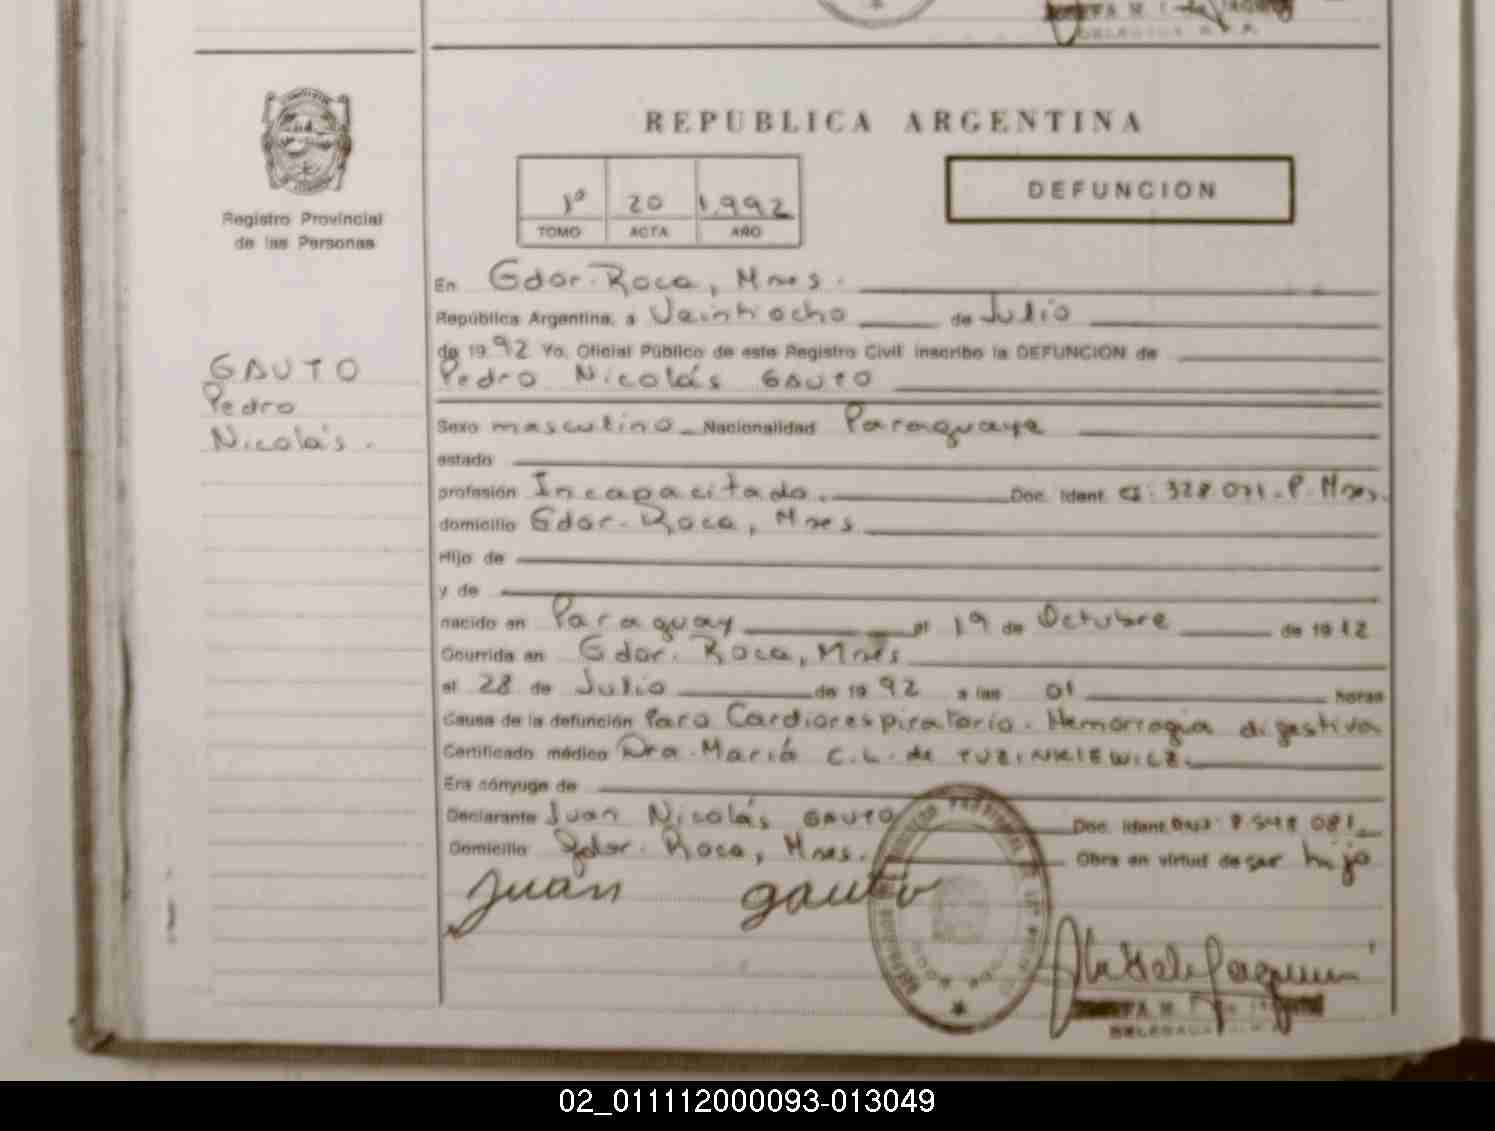 REPUBLICA ARGENTINA
Registro Provincial
de las Personas
1º 20 1.992
TOMO ACTA AÑO
DEFUNCION
GAUTO
Pedro
Nicolás.
En Gdor. Roca, Mnes.
República Argentina, a Veintiocho de Julio
de 1992 Yo, Oficial Público de este Registro Civil inscribo la DEFUNCION de
Pedro Nicolás GAUTO
Sexo masculino Nacionalidad Paraguaya
estado
profesión Incapacitado. Doc. Ident. CI: 328.071-P. Mnes.
domicilio Gdor. Roca, Mnes
Hijo de
y de
nacido en Paraguay el 19 de Octubre de 1912
Ocurrida en Gdor. Roca, Mnes
el 28 de Julio de 1992 a las 01 horas
Causa de la defunción Paro Cardiorespiratorio. Hemorragia digestiva
Certificado médico Dra. María C. L. de TUZINKIEWICZ.
Era cónyuge de
Declarante Juan Nicolás GAUTO Doc. Ident. DNI: 8.548.081
Domicilio Gdor. Roca, Mnes. Obra en virtud de ser hijo
Juan gauto
02_011112000093-013049